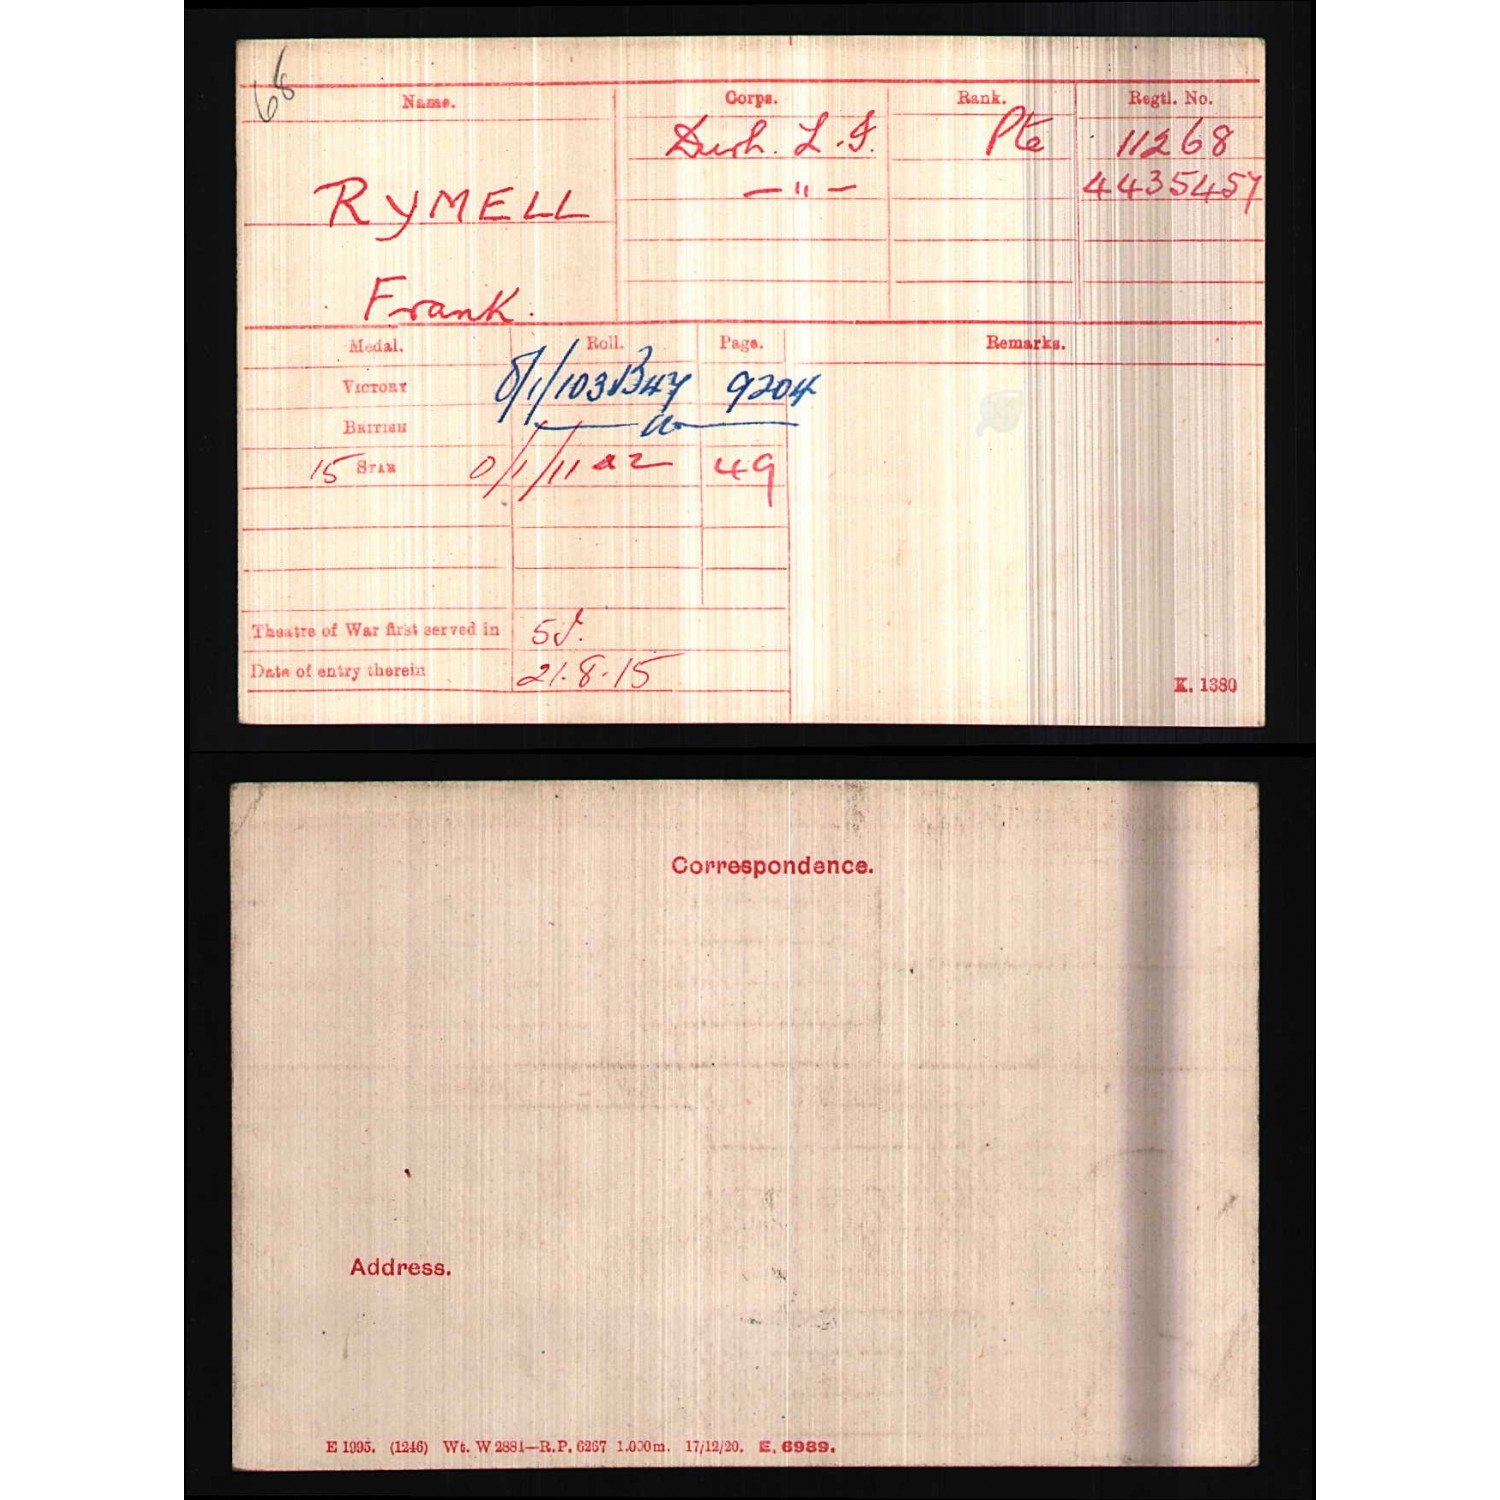 68
Name. Corps. Rank. Regtl. No.
Durh. L.I. Pte 11268
RYMELL — " — 4435457
Frank.
Medal. Roll. Page. Remarks.
VICTORY 0/1/103B47 9204
BRITISH — do —
15 STAR 0/1/11 A2 49
Theatre of War first served in
Date of entry therein 21.8.15
K. 1380
Correspondence.
Address.
E 1995. (1246) Wt. W2881—R.P. 6267 1.000m. 17/12/20. E. 6989.